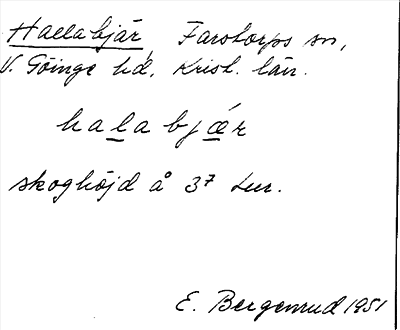 Hallabjär, Farstorps sn,
V. Göinge hd. Krist. län.
halabjǽr
skoghöjd å 37 tur.
E. Bergenrud 1951